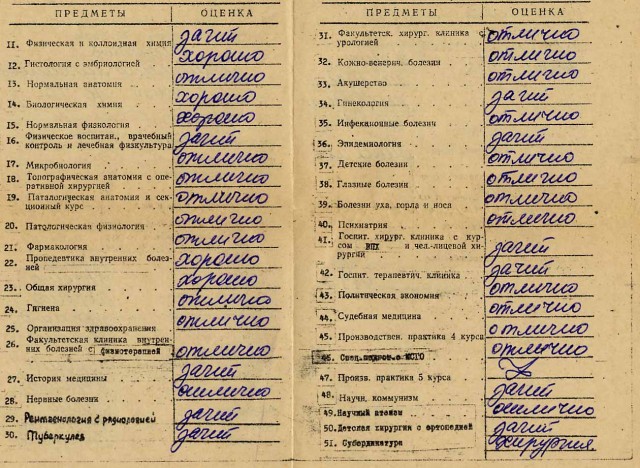 ПРЕДМЕТЫ ОЦЕНКА
11. Физическая и коллоидная химия зачет
12. Гистология с эмбриологией хорошо
13. Нормальная анатомия отлично
14. Биологическая химия хорошо
15. Нормальная физиология хорошо
16. Физическое воспитан., врачебный
контроль и лечебная физкультура зачет
17. Микробиология отлично
18. Топографическая анатомия с опе-
ративной хирургией отлично
19. Паталогическая анатомия и сек-
ционный курс отлично
20. Патологическая физиология отлично
21. Фармакология отлично
22. Пропедевтика внутренних болез-
ней хорошо
23. Общая хирургия хорошо
24. Гигиена отлично
25. Организация здравоохранения отлично
26. Факультетская клиника внутрен-
них болезней с физиотерапией отлично
27. История медицины зачет
28. Нервные болезни отлично
29. Рентгенология с радиологией зачет
30. Туберкулез зачет
ПРЕДМЕТЫ ОЦЕНКА
31. Факультетск. хирург. клиника с
урологией отлично
32. Кожно-венерич. болезни отлично
33. Акушерство отлично
34. Гинекология зачет
35. Инфекционные болезни отлично
36. Эпидемиология зачет
37. Детские болезни отлично
38. Глазные болезни отлично
39. Болезни уха, горла и носа отлично
40. Психиатрия отлично
41. Госпит. хирург. клиника с кур-
сом ВПХ и чел.-лицевой хи-
рургии зачет
42. Госпит. терапевтич. клиника зачет
43. Политическая экономия отлично
44. Судебная медицина отлично
45. Производствен. практика 4 курса отлично
46. отлично
47. Произв. практика 5 курса
48. Научн. коммунизм зачет
49. Научный атеизм отлично
50. Детская хирургия с ортопедией зачет
51. Субординатура хирургия.